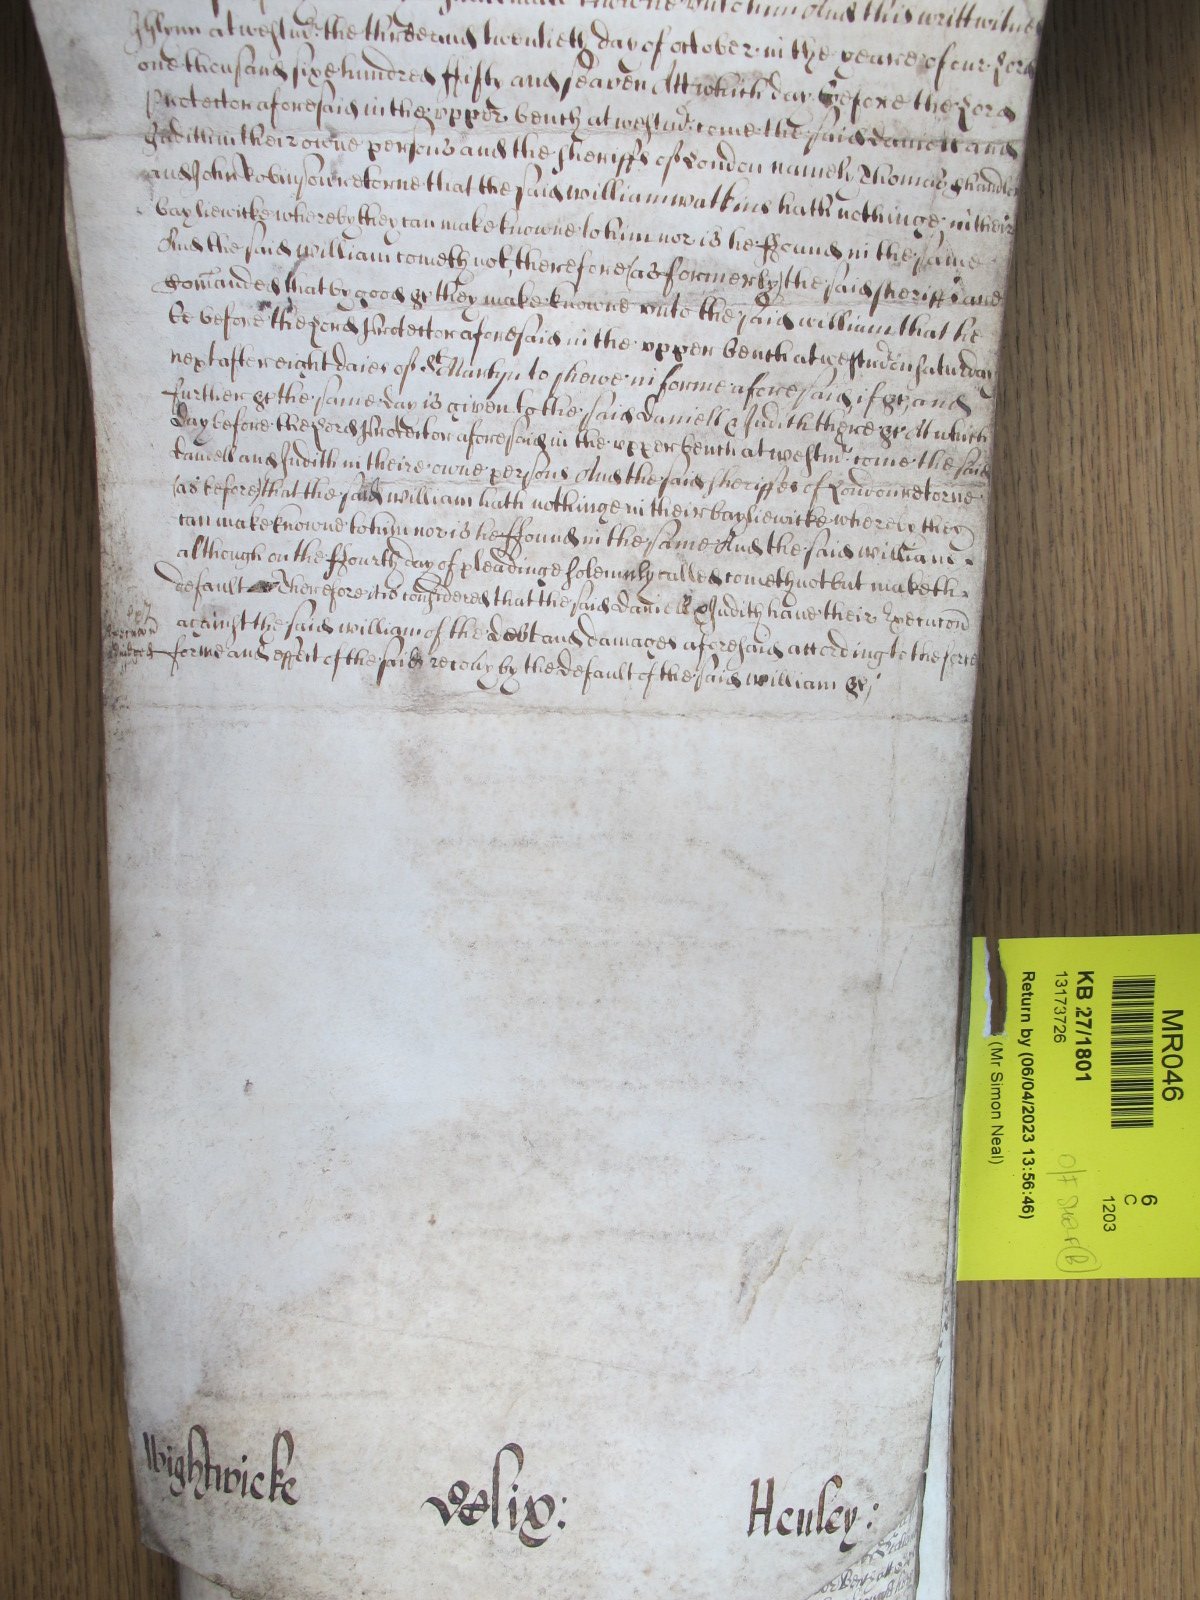 knowne unto him And this writt witnes
Glynn at westmr: the three and twentieth day of october in the yeare of our Lord
one thousand sixe hundred ffifty and seaven Att which day before the Lord
Protector aforesaid in the upper bench at westmr: come the said Daniell and
Judith in their owne persons and the sheriffs of London namely Thomas Chandler
and John Robinson retorne that the said william watkins hath nothinge in their
bayliewicke whereby they can make knowne to him nor is he ffound in the same
And the said william cometh not, therefore (as formerly) the said sheriffs are
Comanded that by good &c they make knowne unto the said william that he
be before the Lord Protector aforesaid in the upper bench at westmr on saturday
next after eight daies of St Martyn to shewe in forme aforesaid if &c, and
further &c the same day is given to the said Daniell & Judith there &c At which
day before the Lord Protector aforesaid in the upper bench at westmr: come the said
Daniell and Judith in theire owne persons And the said sheriffes of London retorne
(as before) that the said william hath nothinge in their bayliewicke whereby they
can make knowne to him nor is he ffound in the same And the said william
although on the ffourth day of pleadinge solemnly called cometh not but maketh
default Therefore it is considered that the said Daniell & Judith have their Execucon
against the said william of the debt and damages aforesaid according to the force
forme and effect of the said recovy by the default of the said william &c;
Judged
Wightwicke
Velix:
Henley:
MR046
6
C
1203
KB 27/1801
13173726
Return by (06/04/2023 13:56:46)
(Mr Simon Neal)